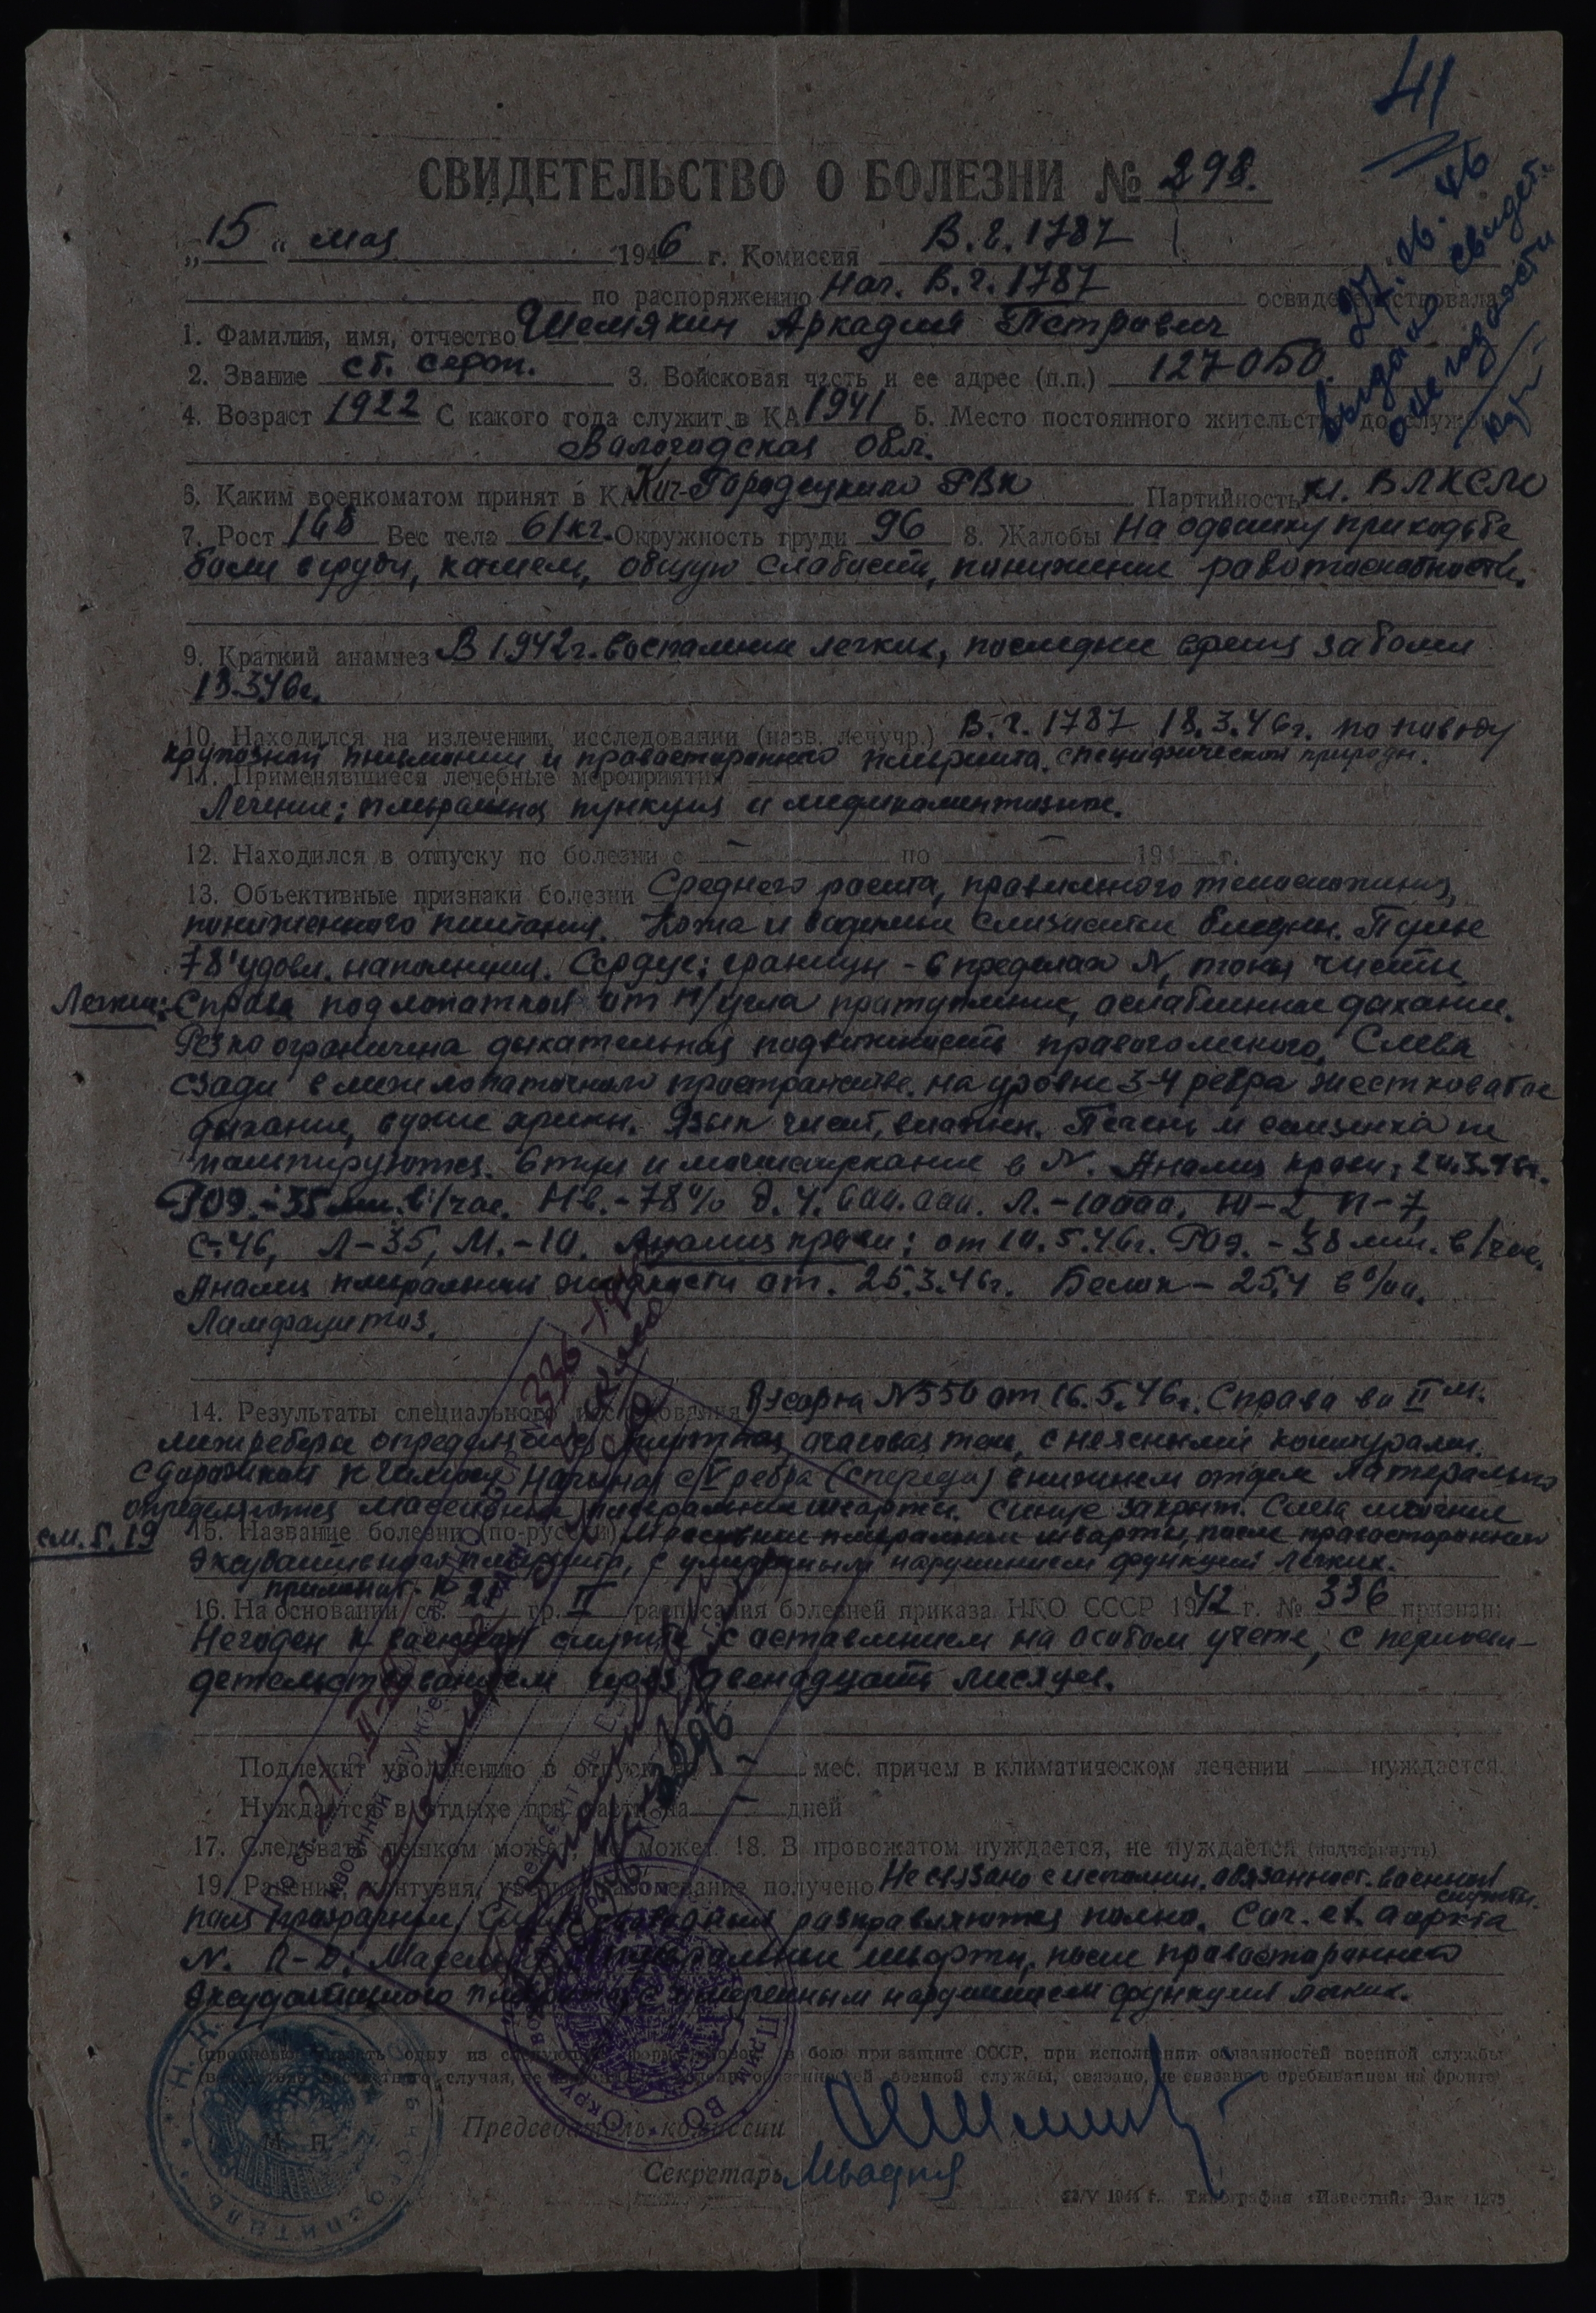 41
СВИДЕТЕЛЬСТВО О БОЛЕЗНИ № 298.
27.06.46
выдано свидет.
о негодности
„15“ мая 1946 г. Комиссия В.г. 1787
по распоряжению Нач. В.г. 1787 освидетельствовала
1. Фамилия, имя, отчество Шемякин Аркадия Петрович
2. Звание ст. серж. 3. Войсковая часть и ее адрес (п.п.) 127 ОБО
4. Возраст 1922 С какого года служит в КА 1941 5. Место постоянного жительства до службы
Вологодская обл.
6. Каким военкоматом принят в КА Кич-Городецкого РВК Партийность чл. ВЛКСМ
7. Рост 168 Вес тела 61 кг. Окружность груди 96 8. Жалобы На одышку при ходьбе
боли в груди, кашель, общую слабость, понижение работоспособности.
9. Краткий анамнез В 1942 г. воспаление легких, последнее время заболел
13.3.46 г.
10. Находился на излечении, исследовании (назв. лечучр.) В.г. 1787 18.3.46 г. по поводу
крупозной пневмонии и правостороннего плеврита специфической природы.
11. Применявшиеся лечебные мероприятия
Лечение: плевральная пункция и медикаментозное.
12. Находился в отпуску по болезни с – по – 194 г.
13. Объективные признаки болезни Среднего роста, правильного телосложения,
пониженного питания. Кожа и видимые слизистые бледны. Пульс
78' удовл. наполнения. Сердце: границы - в пределах N, тоны чисты
Легкие: Справа под лопаткой от н/угла притупление, ослабленное дыхание.
Резко ограничена дыхательная подвижность правого легкого. Слева
сзади в межлопаточном пространстве на уровне 3-4 ребра жестковатое
дыхание, сухие хрипы. Язык чист, влажен. Печень и селезенка не
пальпируются. Стул и мочеиспускание в N. Анализ крови: 20.3.46 г.
РОЭ. - 35 мм. в 1/час. Нв. - 78% Э. 4.600.000. Л. - 10000. Ю - 2, П - 7,
С - 46, Л - 35, М. - 10. Анализ крови: от 10.5.46 г. РОЭ. - 38 мм. в 1/час.
Анализ плевральной жидкости от. 25.3.46 г. Белок - 25,4 в 0/00.
Лимфоцитоз.
14. Результаты специального исследования R-скопия № 550 от 16.5.46 г. Справа во II м.
межреберье определяется плотная очаговая тень, с неясными контурами.
с дорожкой к гилюсу. Начиная с IV ребра (спереди) в нижнем отделе латерально
определяются массивные плевральные шварты. Синус закрыт. Слева легочные
см. п. 19
15. Название болезни (по-русски) Массивные плевральные шварты, после правостороннего
экссудативного плеврита, с умеренным нарушением функции легких.
применит. к
16. На основании ст. 21 гр. II расписания болезней приказа НКО СССР 1942 г. № 336 признан:
Негоден к военной службе с оставлением на особом учете, с переосви-
детельствованием через двенадцать месяцев.
Подлежит увольнению в отпуск на – мес. причем в климатическом лечении – нуждается.
Нуждается в отдыхе при части на – дней
17. Следовать пешком может, не может. 18. В провожатом нуждается, не нуждается (подчеркнуть)
19. Ранение, контузия, увечье, заболевание получено Не связано с исполнен. обязанност. военной
службы.
поля прозрачны. Синус свободный расправляются полно. Cor. et. аорта
N. R-D: Массивные плевральные шварты, после правостороннего
экссудативного плеврита с умеренным нарушением функции легких.
(прописью указать одну из следующих формулировок: в бою при защите СССР, при исполнении обязанностей военной службы
случая, не обязанностей военной службы, связано, не связано с пребыванием на фронте)
Председатель комиссии
Секретарь
М. П.
1944 г. Типография «Известий» Зак 1275